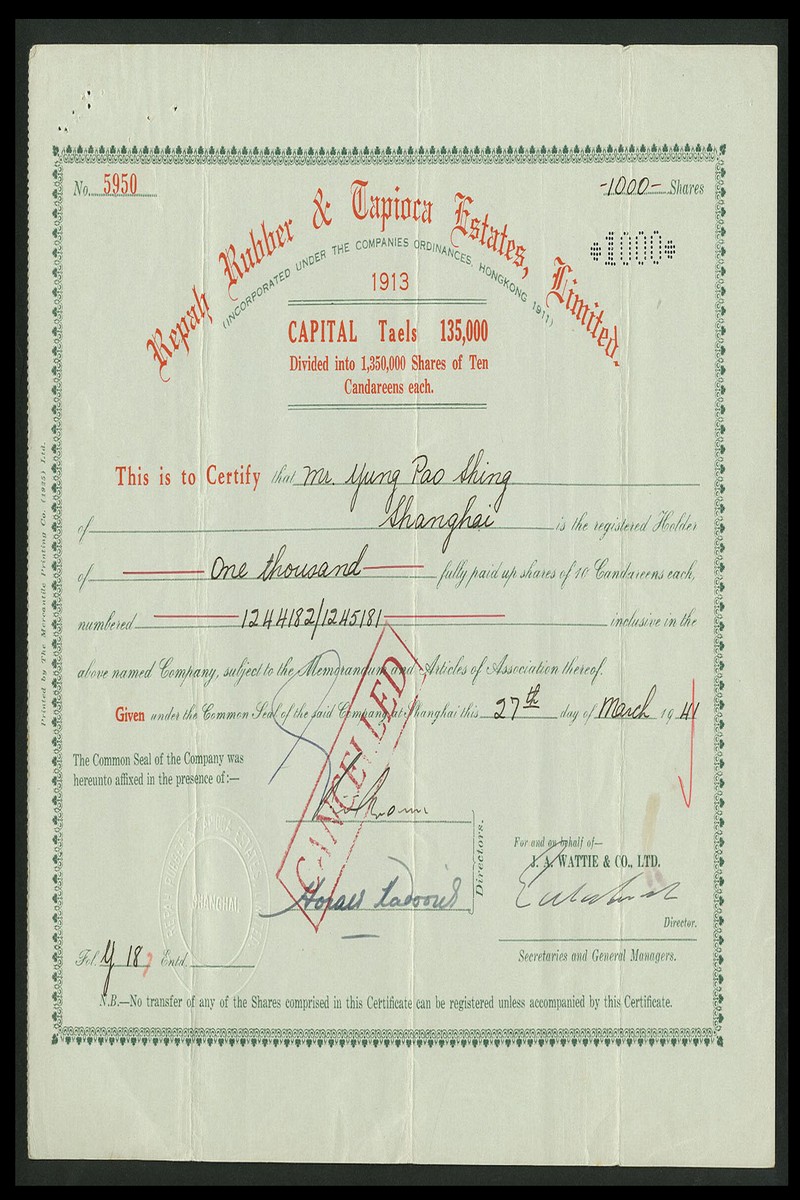 No. 5950
-1000- Shares
*1000*
Repah Rubber & Tapioca Estates, Limited.
(INCORPORATED UNDER THE COMPANIES ORDINANCES, HONGKONG 1911)
1913
CAPITAL Taels 135,000
Divided into 1,350,000 Shares of Ten
Candareens each.
This is to Certify that Mr. Yung Pao Shing
of Shanghai is the registered Holder
of One thousand fully paid up shares of 10 Candareens each,
numbered 1244182/1245181 inclusive in the
above named Company, subject to the Memorandum and Articles of Association thereof.
Given under the Common Seal of the said Company at Shanghai this 27th day of March 1941
CANCELLED
The Common Seal of the Company was
hereunto affixed in the presence of:—
Directors.
For and on behalf of—
J. A. WATTIE & CO., LTD.
Horace Kadoorie
SHANGHAI
Director.
Secretaries and General Managers.
Fol. Y 18 Entd.
N.B.—No transfer of any of the Shares comprised in this Certificate can be registered unless accompanied by this Certificate.
Printed by The Mercantile Printing Co. (1925) Ltd.